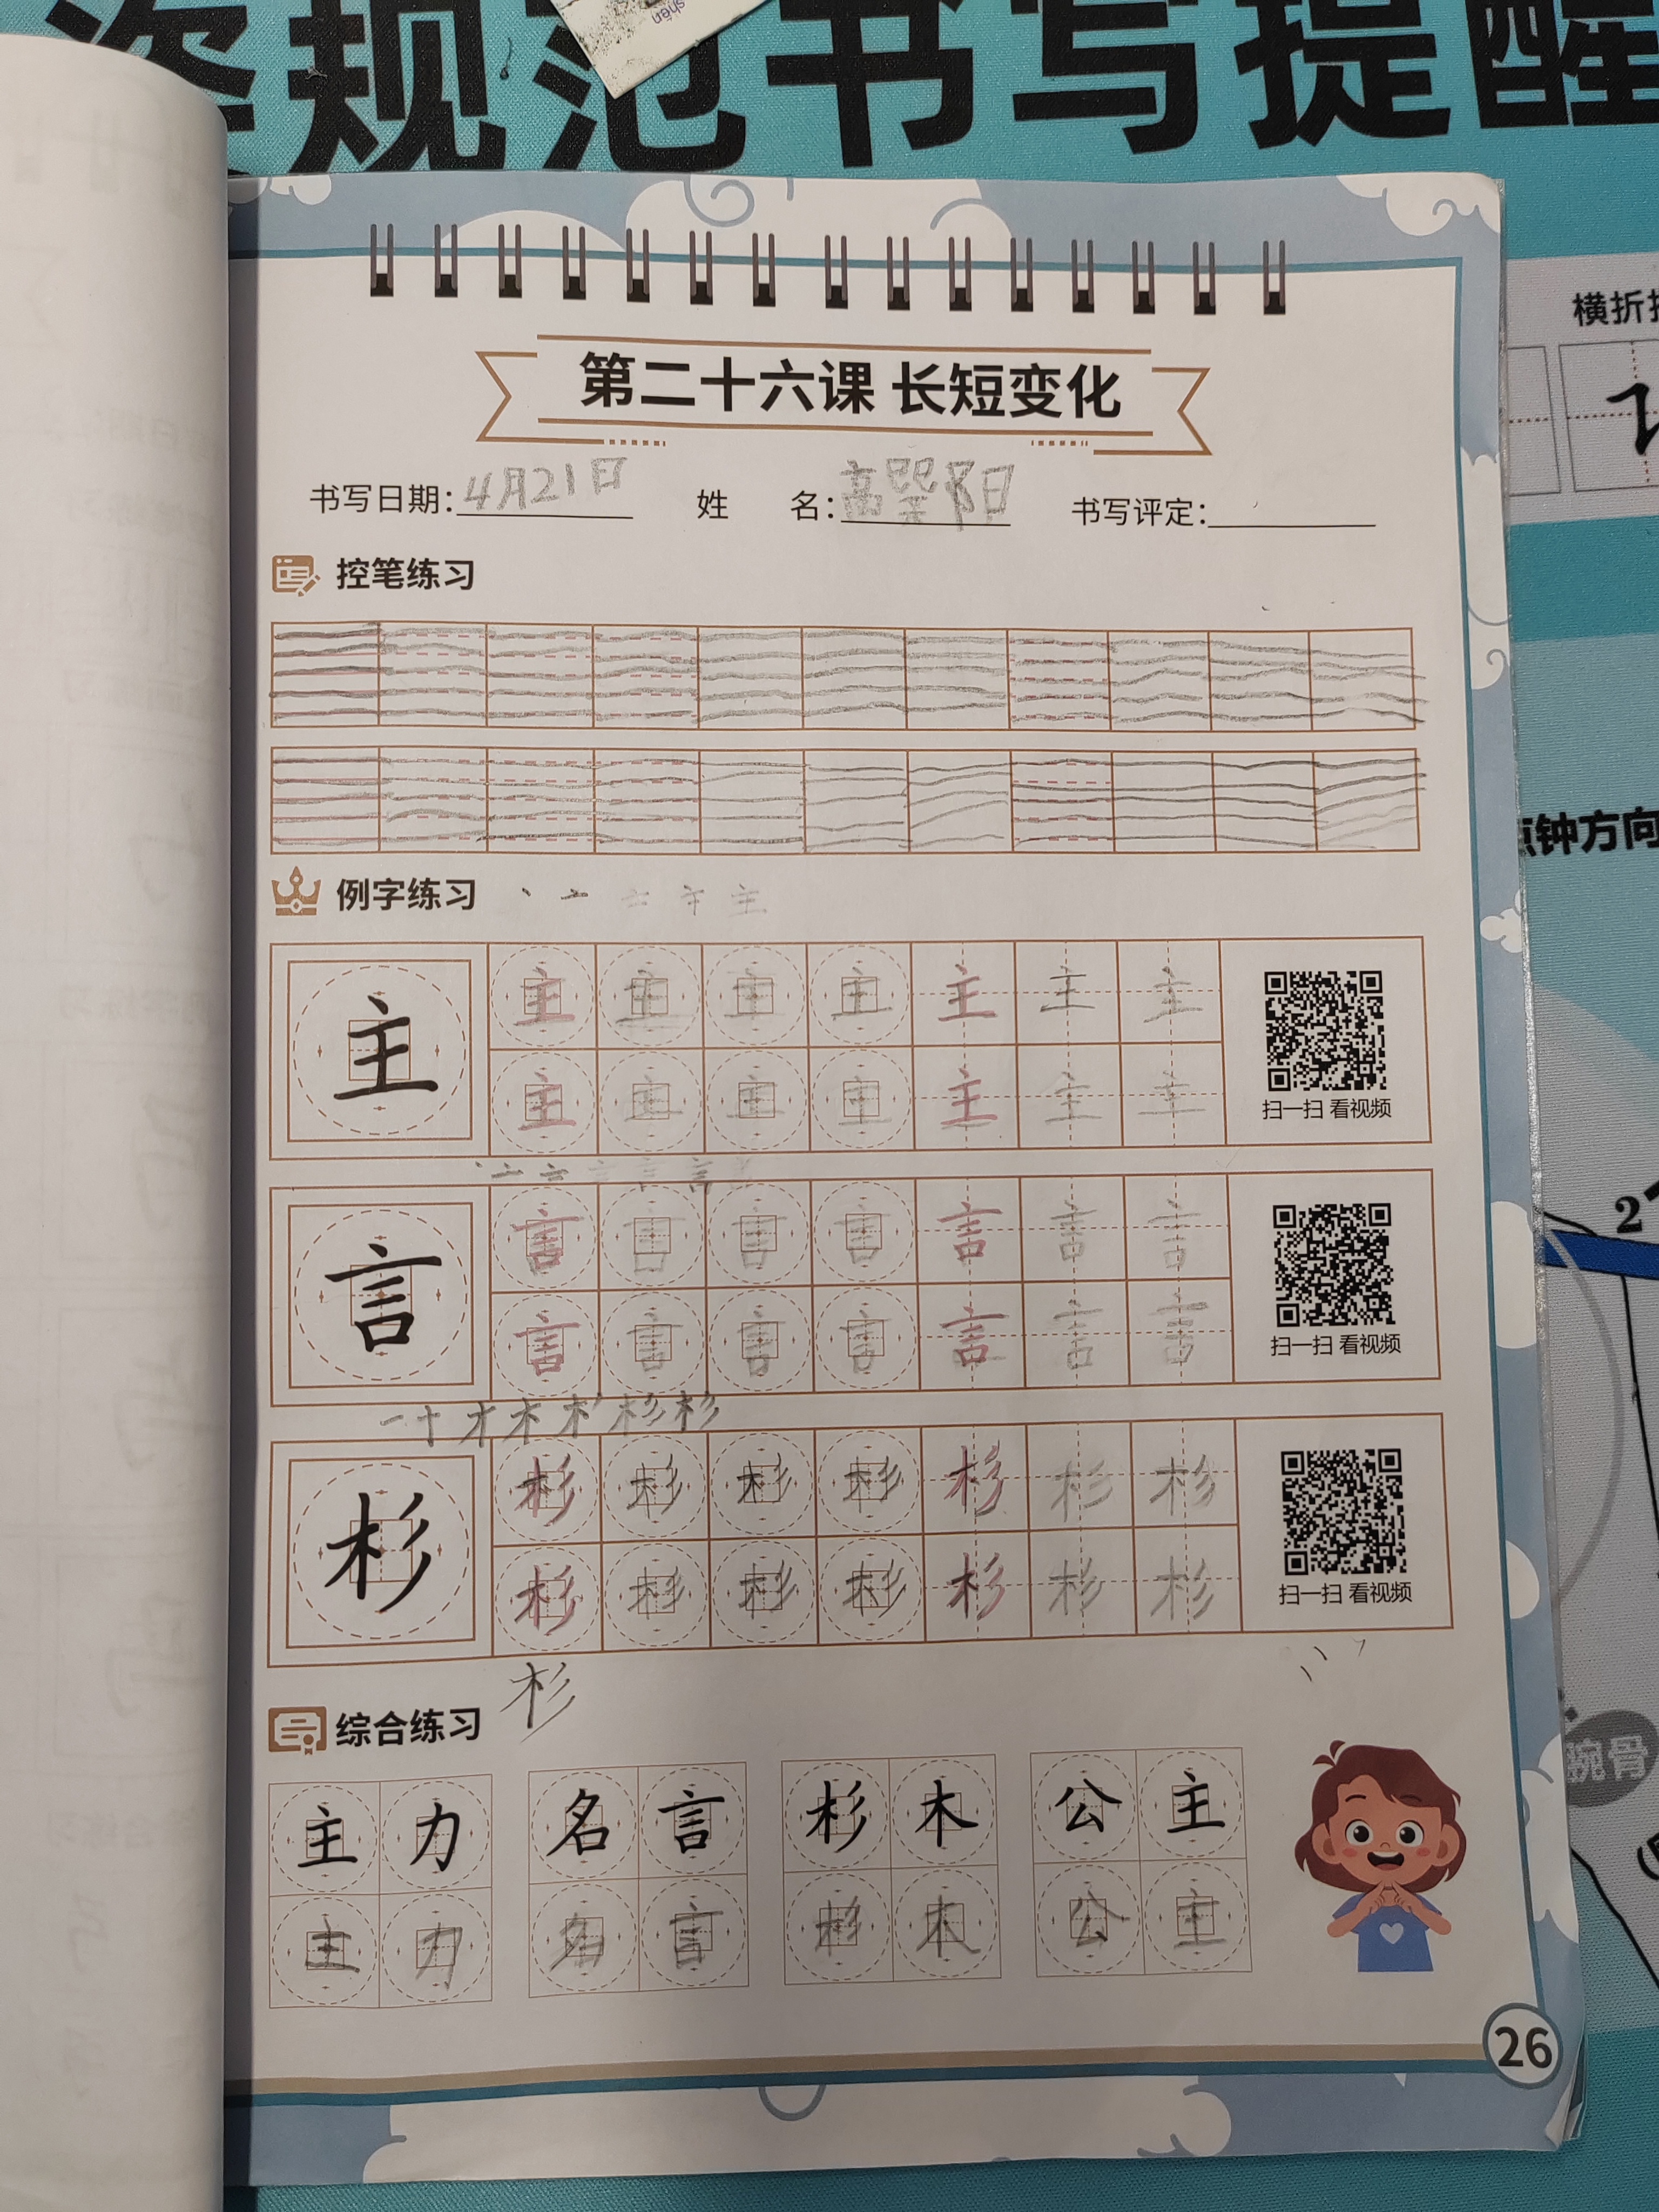 shēn
姿规范书写提醒
横折折
第二十六课 长短变化
书写日期：4月21日 姓 名：高 阳 书写评定：
控笔练习
点钟方向
例字练习 丶 亠 主
主 主 主 主 主 主 主 主
主 主 主 主 主 主 主
扫一扫 看视频
言 言 言 言 言 言 言 言
言 言 言 言 言 言 言
扫一扫 看视频
2
一 十 才 木 杉 杉
杉 杉 杉 杉 杉 杉 杉 杉
杉 杉 杉 杉 杉 杉 杉
扫一扫 看视频
杉
综合练习
腕骨
主力 名言 杉木 公主
主力 名言 杉木 公主
26